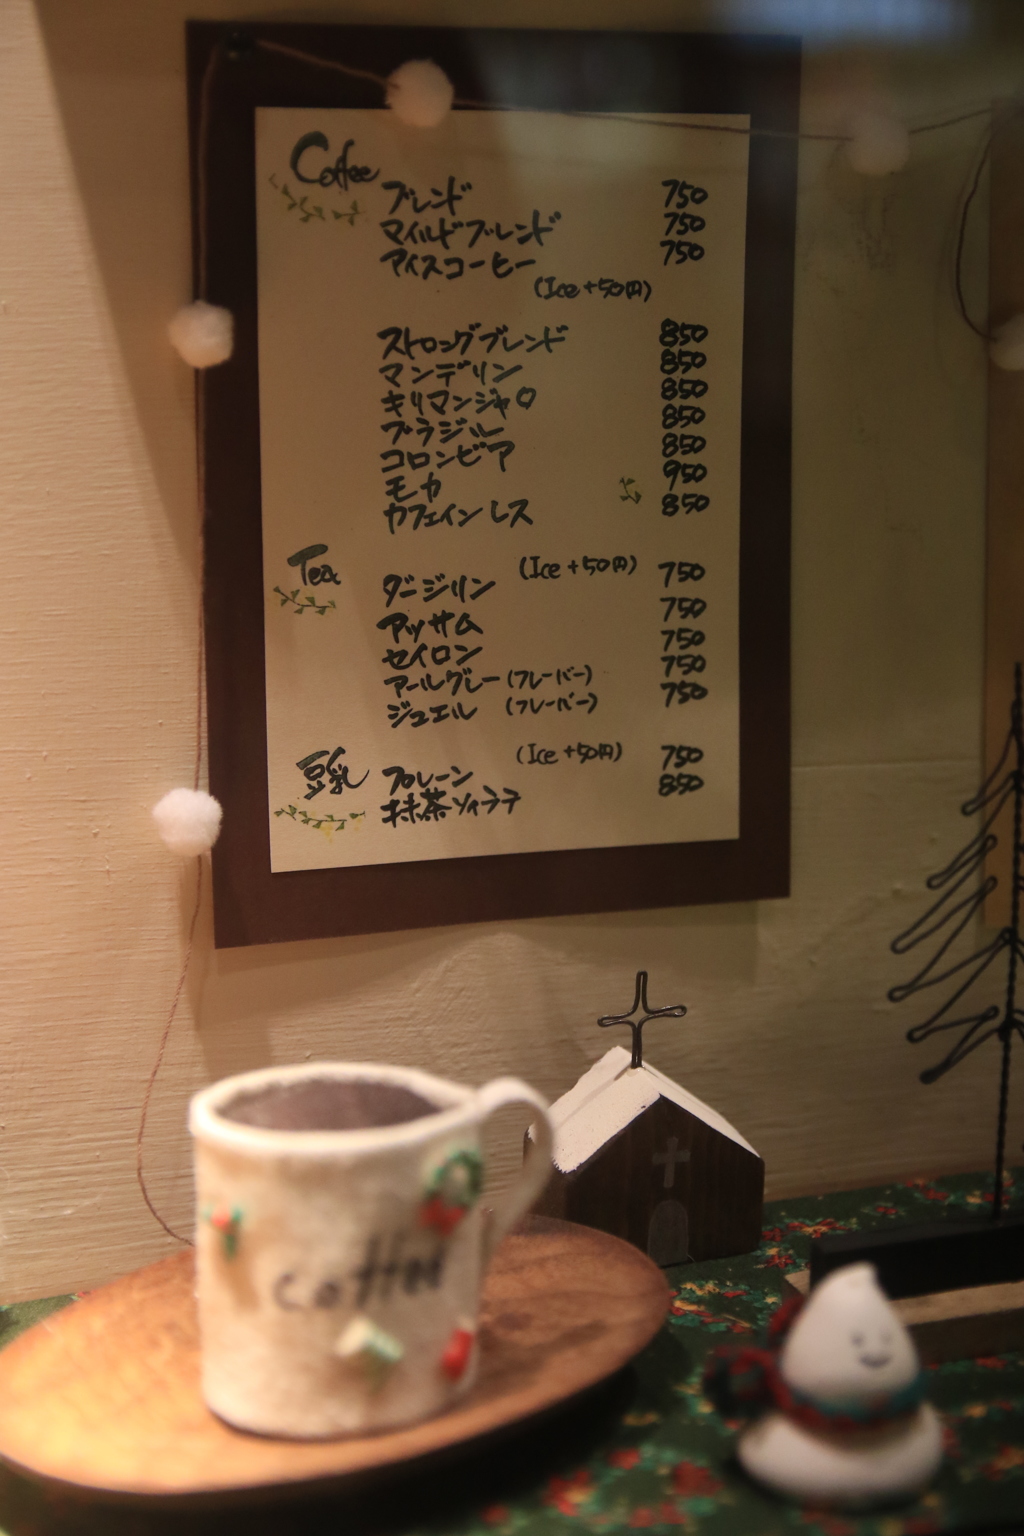 Coffee
ブレンド 750
マイルドブレンド 750
アイスコーヒー 750
(Ice +50円)
ストロングブレンド 850
マンデリン 850
キリマンジャロ 850
ブラジル 850
コロンビア 850
モカ 950
カフェインレス 850
Tea (Ice +50円)
ダージリン 750
アッサム 750
セイロン 750
アールグレー (フレーバー) 750
ジュエル (フレーバー) 750
豆乳 (Ice +50円)
プレーン 750
抹茶ソイラテ 850
coffee